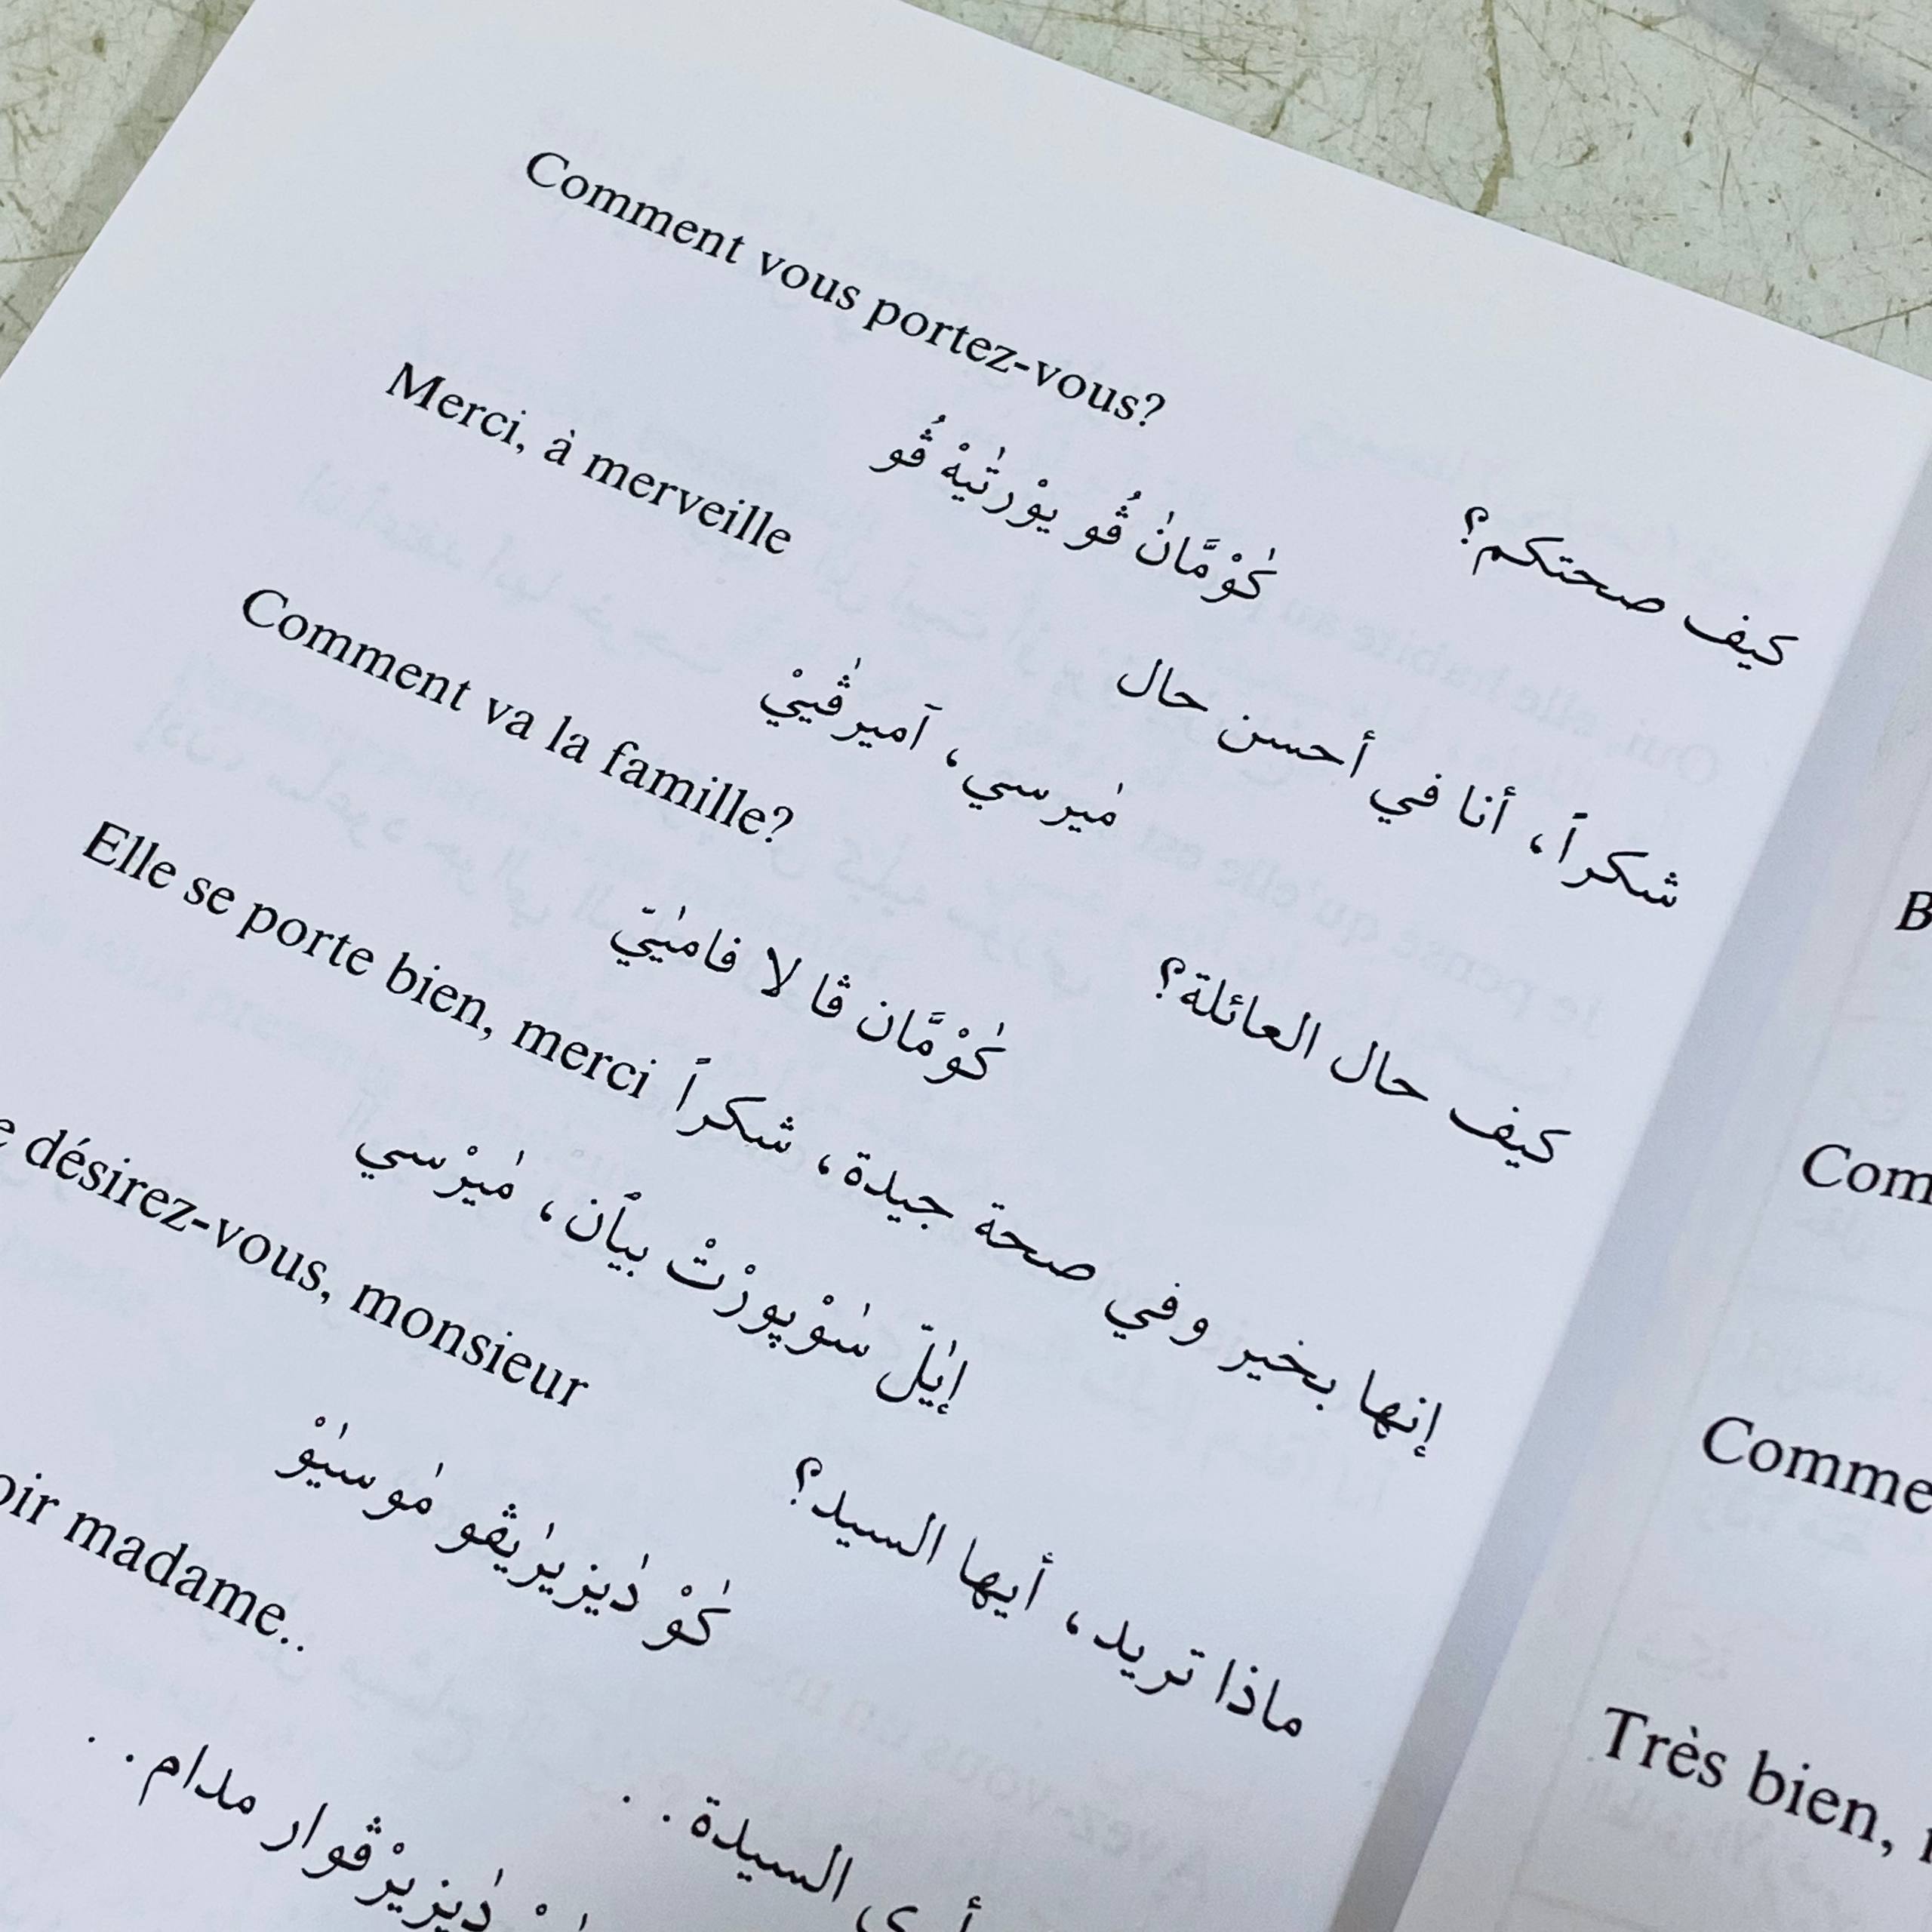 Comment vous portez-vous?
كيف صحتكم؟ كٰوْمَّانْ ڤُو پوْرتٰيهْ ڤُو
Merci, à merveille
شكراً، أنا في أحسن حال مٰيرسي، آميرڤٰييْ
Comment va la famille?
كيف حال العائلة؟ كٰوْمَّان ڤا لا فامٰييّ
Elle se porte bien, merci إنها بخير وفي صحة جيدة، شكراً
إيٰلّ سٰوْپورْتْ بيٱن، مٰيرْسي
désirez-vous, monsieur
ماذا تريد، أيها السيد؟ كٰوْ دٰيزيرٰيڤو مٰوسيٰوْ
oir madame..
السيدة.. دٰيزيرْڤوار مدام..
B
Com
Comme
Très bien,